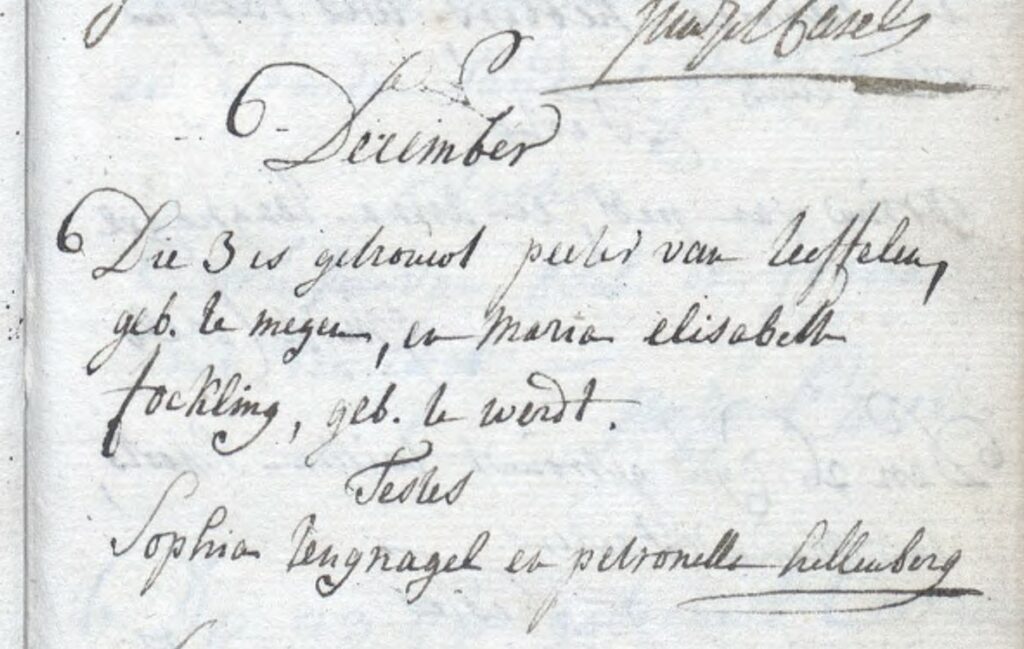 Casels
December
Die 3 is getrouwt peeter van teeffelen,
geb. te megen, en maria elisabeth
fockling, geb. te werdt.
Testes
Sophia tengnagel en petronella hellenberg